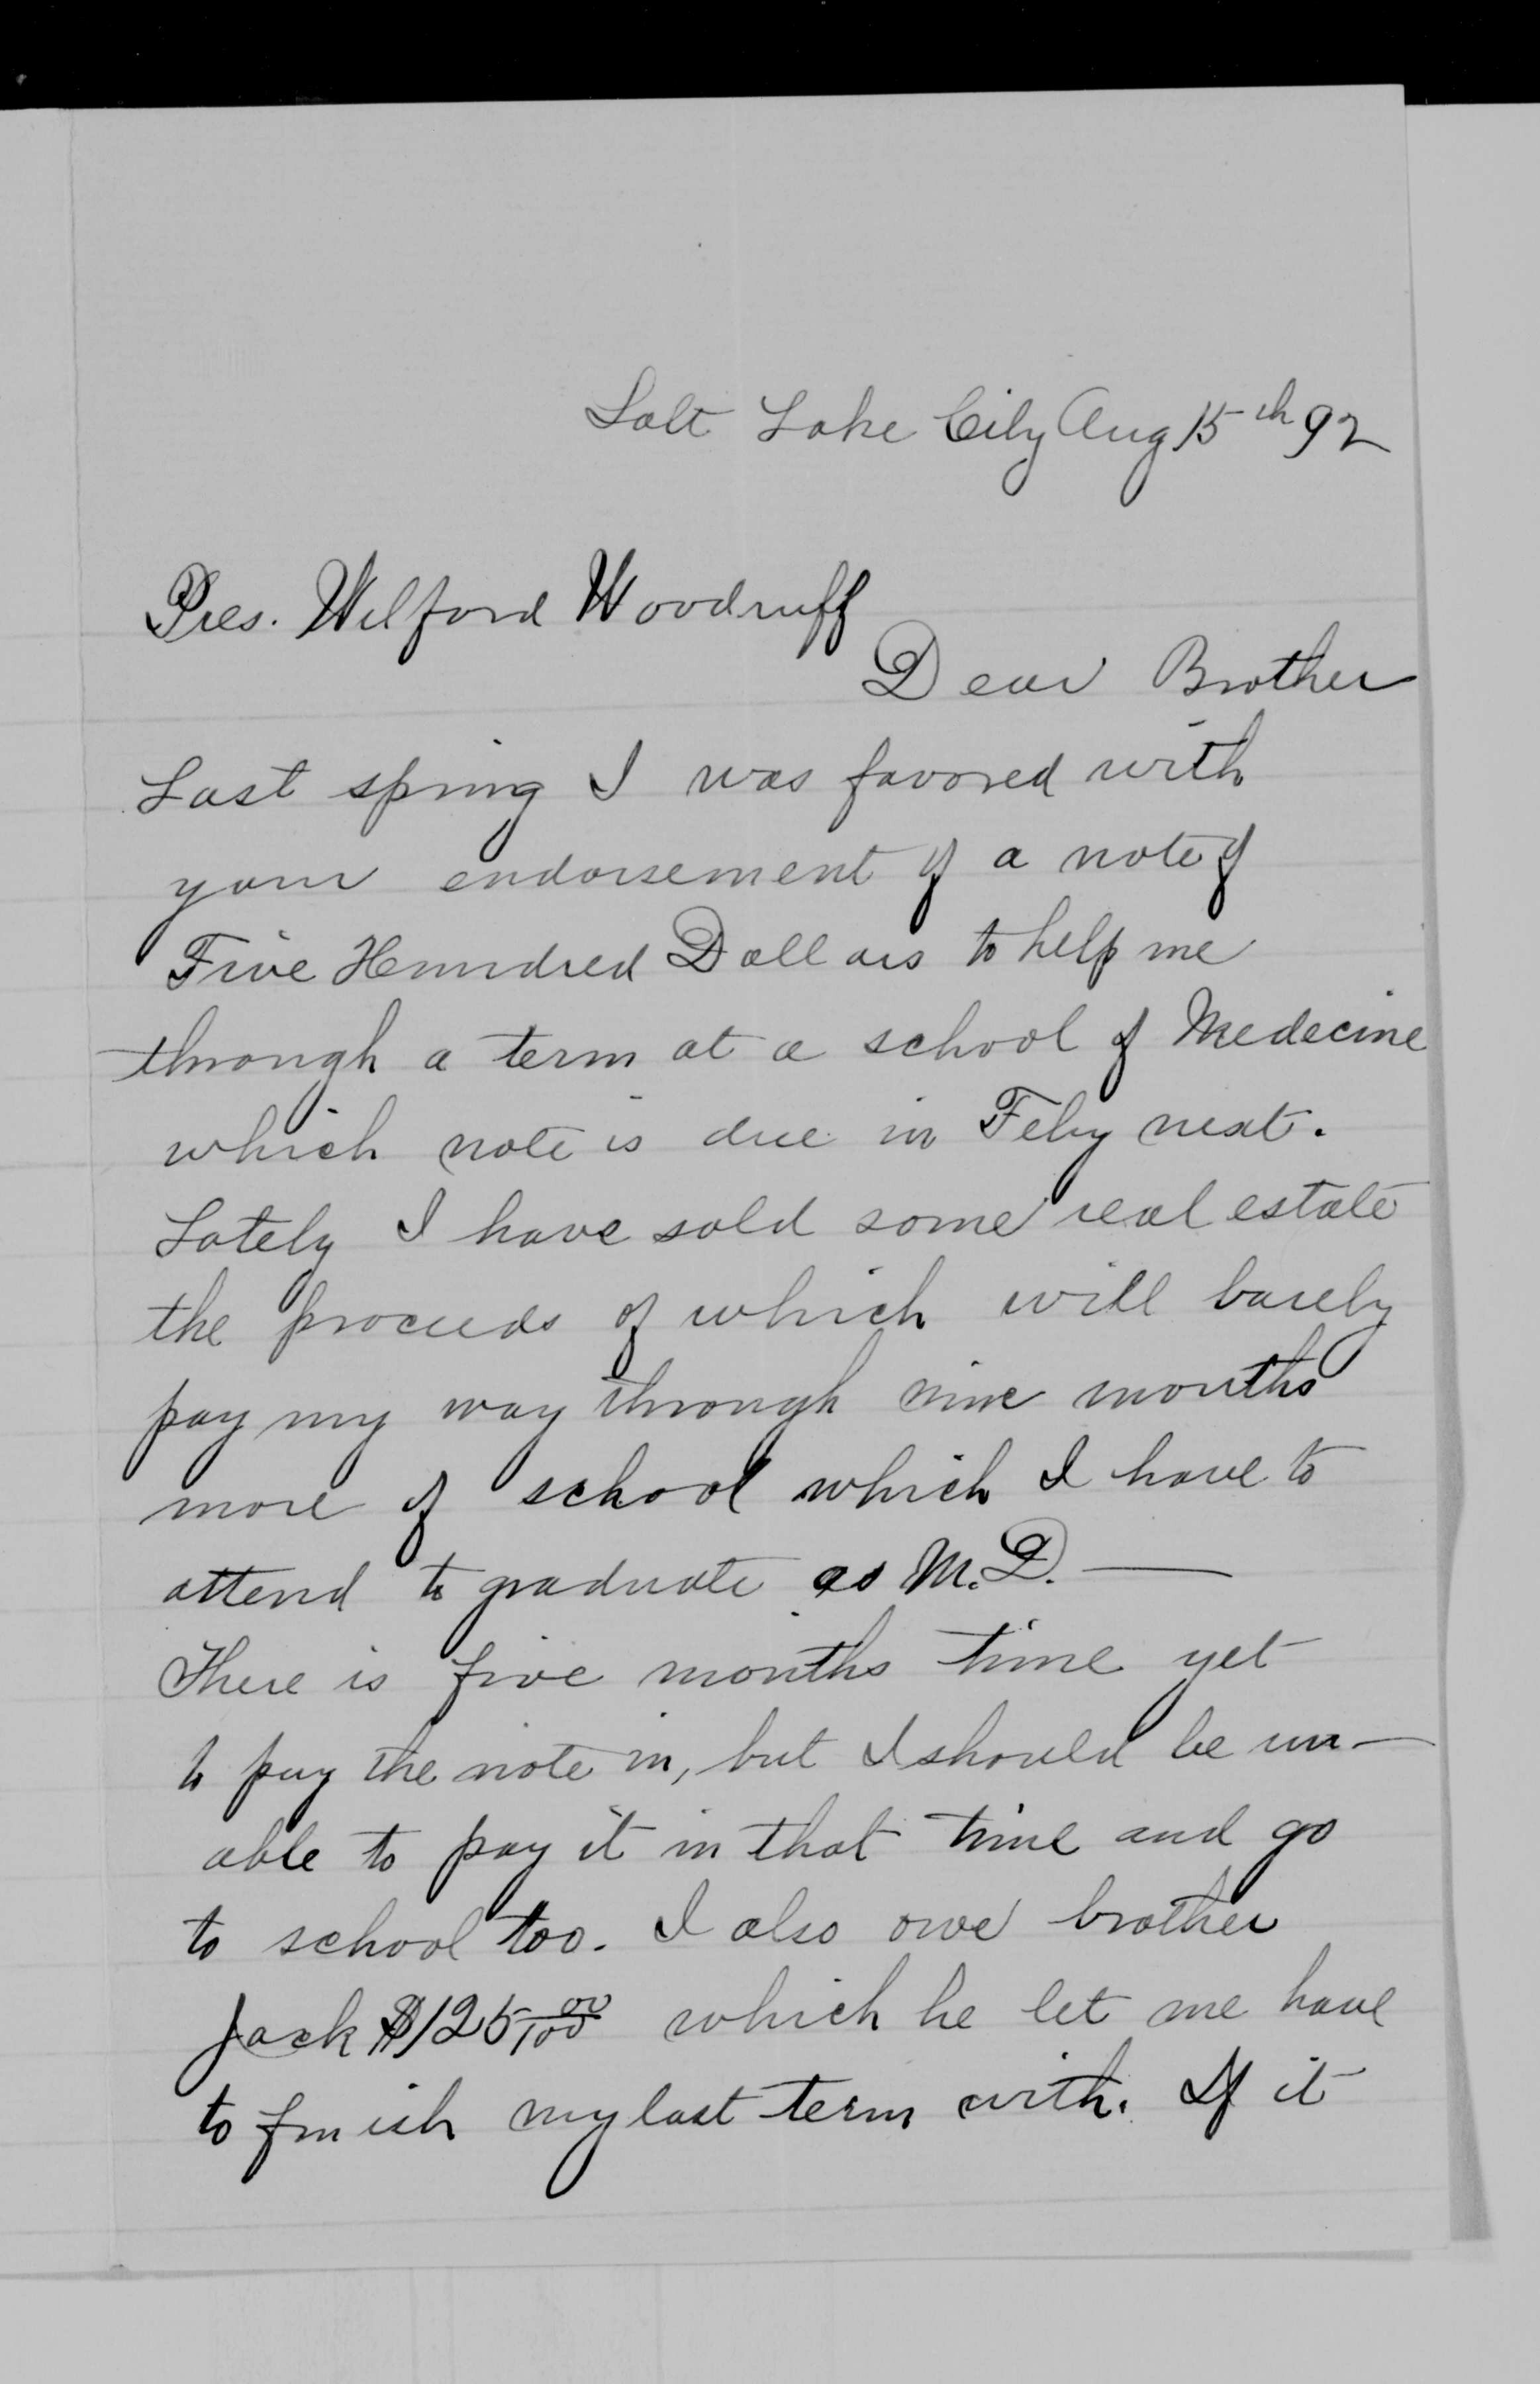 Salt Lake City Aug 15th 92
Pres. Wilford Woodruff
Dear Brother
Last spring I was favored with
your endorsement of a note of
Five Hundred Dollars to help me
through a term at a school of Medecine
which note is due in Feby next.
Lately I have sold some real estate
the proceeds of which will barely
pay my way through nine months
more of school which I have to
attend to graduate as M.D. —
There is five months time yet
to pay the note in, but I should be un-
able to pay it in that time and go
to school too. I also owe brother
Jack $125 00/100 which he let me have
to finish my last term with. If it